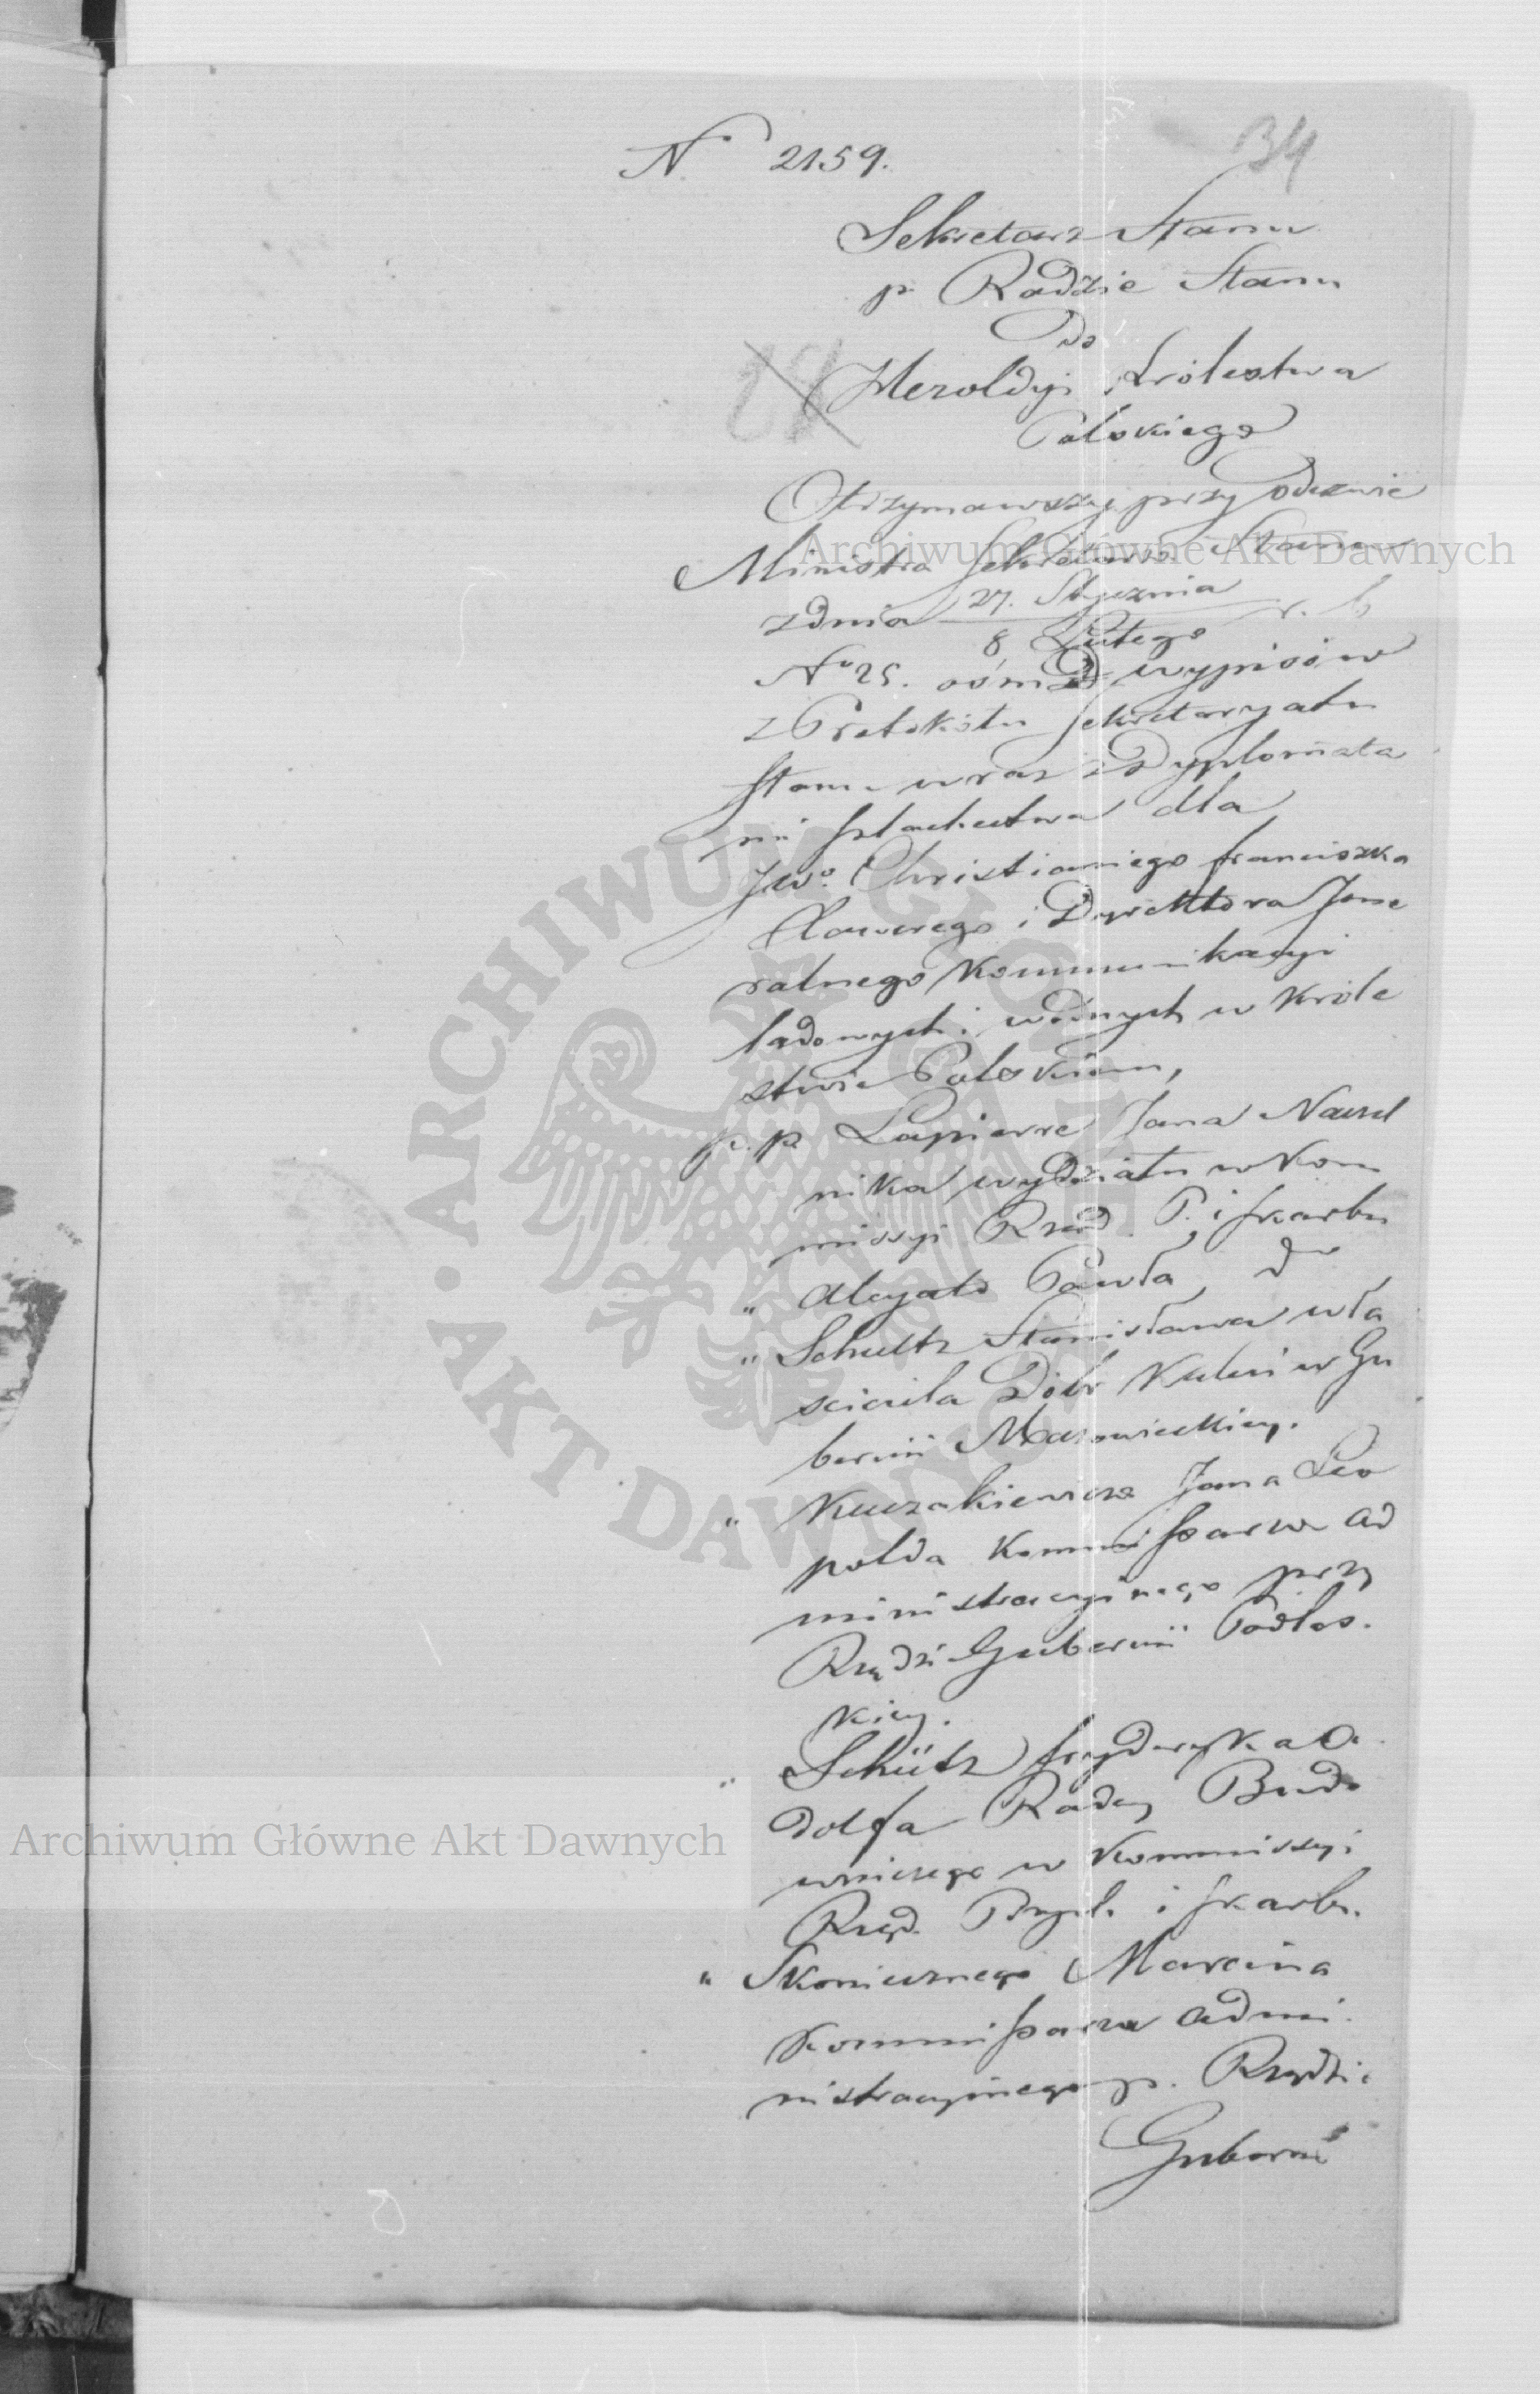 N 2159.
34
Sekretarz Stanu
p. Radzie Stanu
Do
Heroldyi Królestwa
Polskiego
Otrzymawszy przy odezwie
Ministra Sekretarza Stanu
z dnia 27. Stycznia / 8 Lutego r. b
No 25. ośm wypisów
z Protokółu Sekretaryatu
Stanu wraz z Dyplomata
mi szlachectwa dla
JWo. Christianiego Franciszka
Xawerego i Dyrektora Jene
ralnego Kommunikacyi
lądowych i wodnych w Króle
stwie Polskiem,
p. p. Lapierre Jana Naczel
nika wydziału w Kom
missyi Rząd. P. i Skarbu
" Alcyato Pawła, do
" Schultz Stanisława wła
sciciela Dóbr w Gu
bernii Mazowieckiey.
" Kuczakiewicza Jana Leo
polda Kommissarza Ad
ministracyjnego przy
Rządzi Gubernii Podlas.
kiey.
" Schütz Fryderyka A.
dolfa Radcy Budo
wniczego w Kommissyi
Rząd. Przych. i Skarbu.
" Skoniecznego Marcina
Kommissarza Admi.
nistracyjnego p. Rządzie
Gubernii
Archiwum Główne Akt Dawnych
Archiwum Główne Akt Dawnych
ARCHIWUM GŁÓWNE AKT DAWNYCH